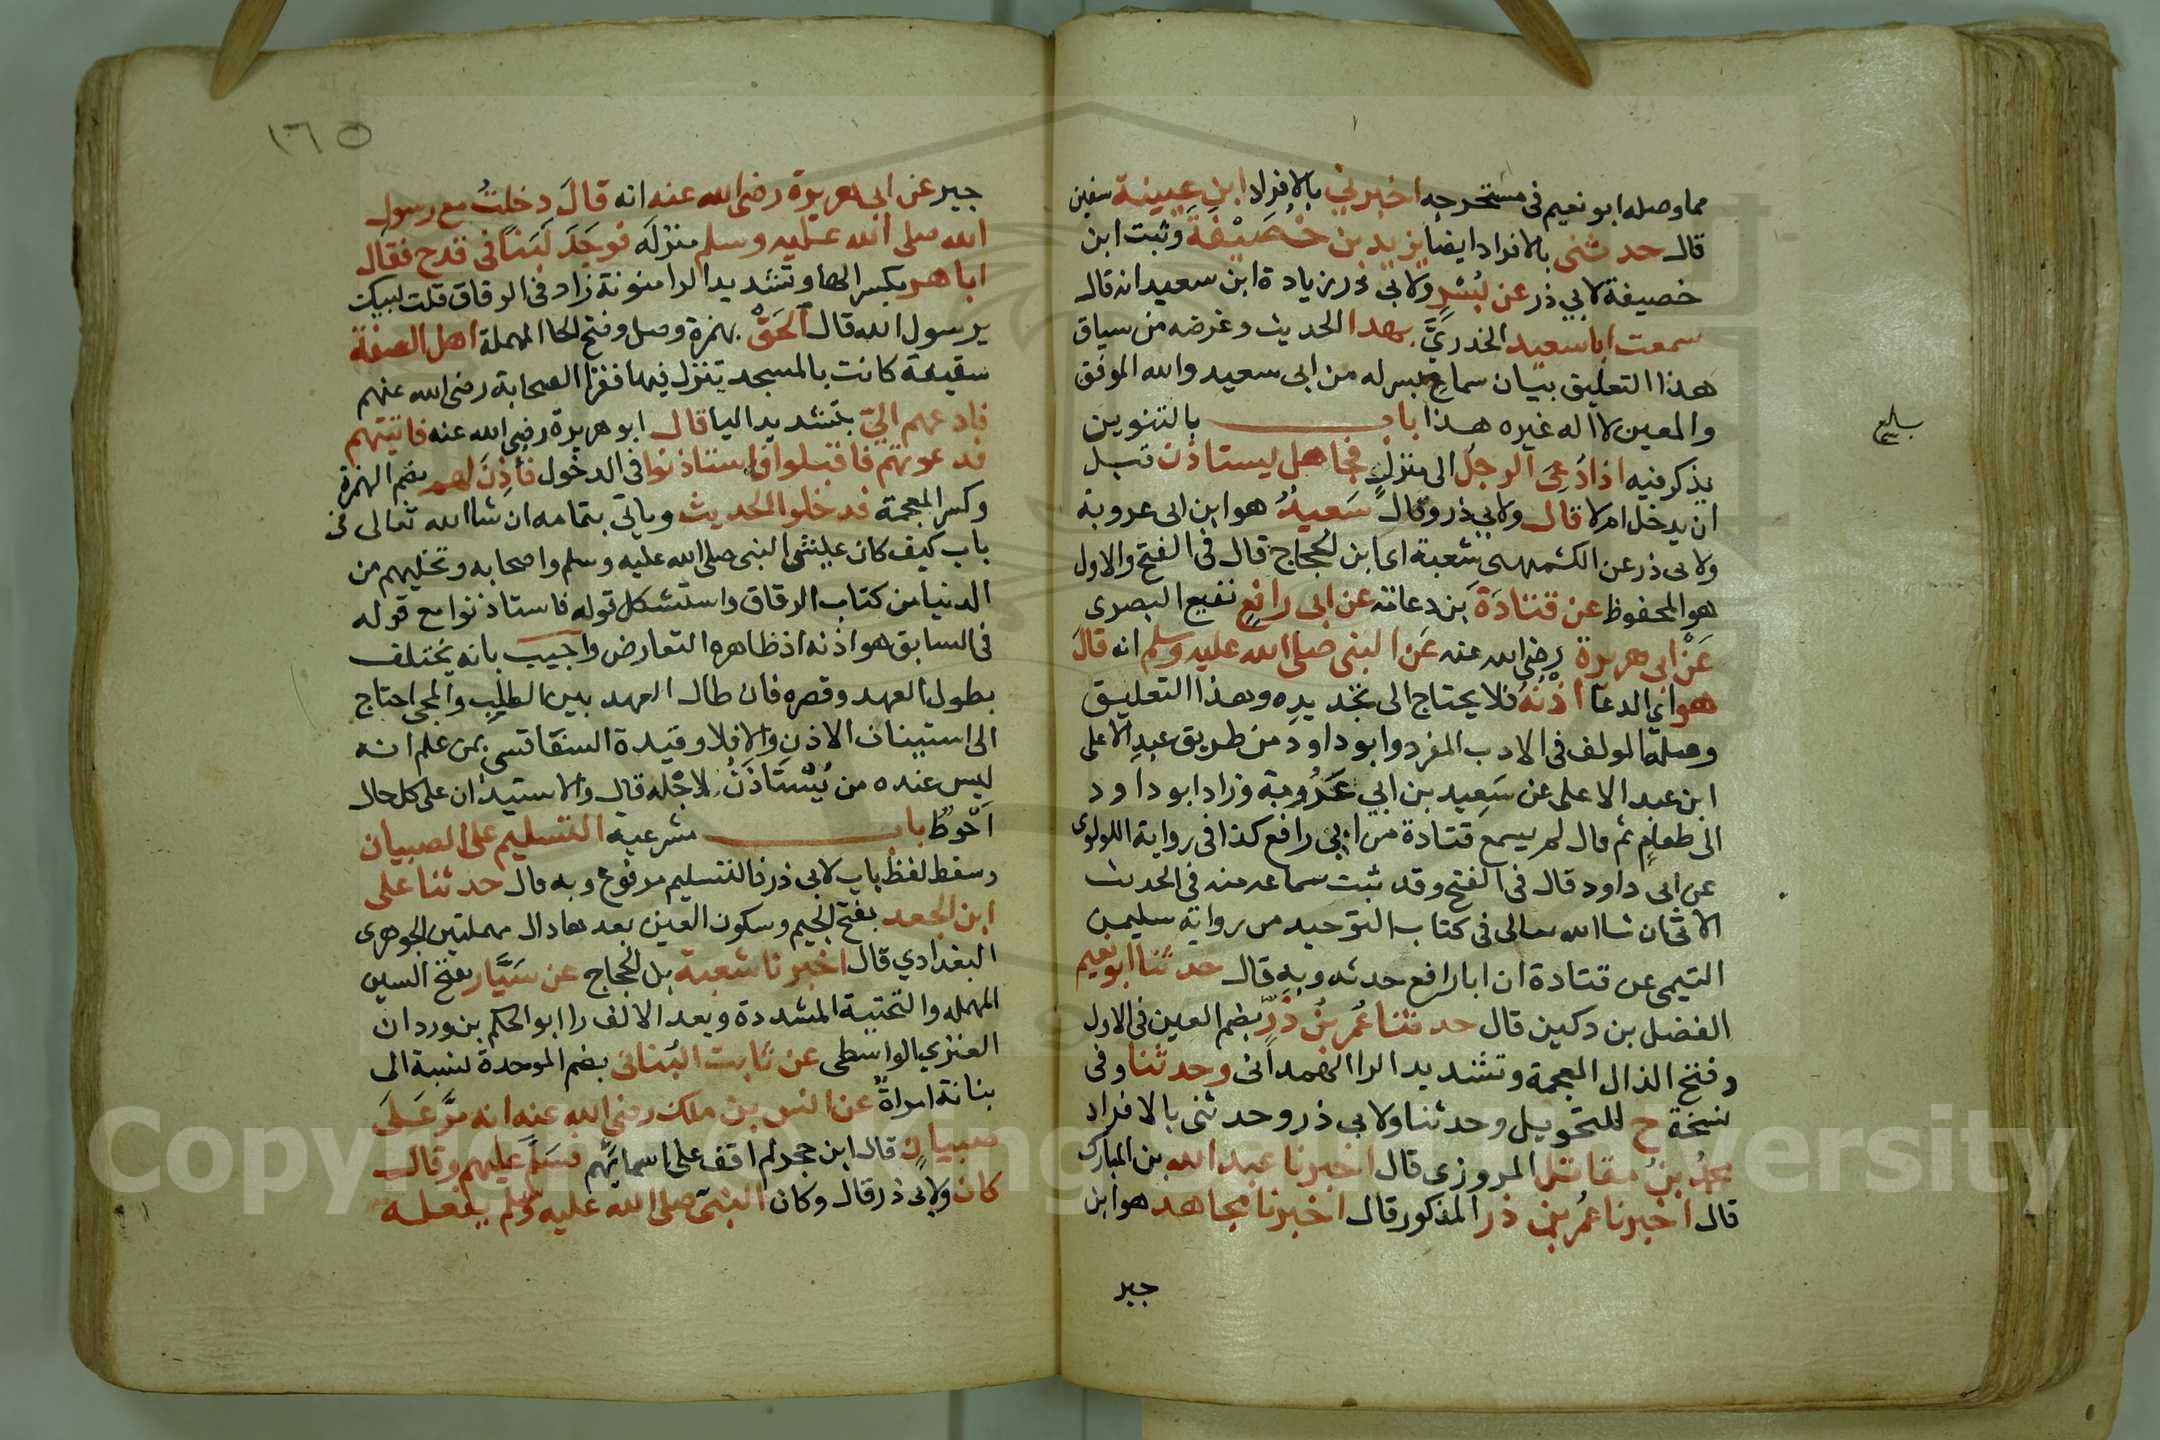 مما وصله ابو نعيم فى مستخرجه اخبرنى بالافراد ابن عيينة سفين
قال حدثنى بالافراد ايضا يزيد بن خُصَيْفَةَ وثبت ابن
خصيفة لابي ذر عن بُسْرٍ ولابي ذر زيادة ابن سعيد انه قال
سمعت ابا سعيد الخدريَّ بهذا الحديث وغرضه من سياق
هذا التعليق بيان سماع بسر له من ابى سعيد والله الموفق
والمعين لا اله غيره هذا باب بالتنوين
يذكر فيه اذا دُعِىَ الرجلُ الى منزلٍ فجا هل يستاذن قبل
ان يدخل ام لا قال ولابي ذر وقال سَعيدٌ هو ابن ابى عروبة
ولابى ذر عن الكشميهنى شعبة اى ابن الحجاج قال فى الفتح والاول
هو المحفوظ عن قتادَةَ بن دعامة عن ابى رافعٍ نفيع البصرى
عَنْ ابى هريرة رضى الله عنه عَن النبى صلى الله عليه وسلم انه قالَ
هو اي الدعا اذْنُهُ فلا يحتاج الى تجديدِه وهذا التعليق
وصله المولف فى الادب المفرد وابو داود من طريق عبدِ الاعلى
ابن عبد الاعلى عن سَعِيد بن ابي عَرُوبة وزاد ابو داود
الى طعامٍ ثم قال لم يسمع قتادة من ابي رافع كذا فى رواية اللولوى
عن ابى داود قال فى الفتح وقد ثبت سماعه منه فى الحديث
الاتى ان شا الله تعالى فى كتاب التوحيد من رواية سليمن
التيمى عن قتادة ان ابا رافع حدثه وبه قال حدثنا ابو نعيم
الفضل بن دكين قال حدثنا عُمر بنُ ذَرٍّ بضم العين فى الاول
وفتح الذال المعجمة وتشديد الرا الهمدانى وحدثنا وفى
نسخة ح للتحويل وحدثنا ولابي ذر وحدثنى بالافراد
محمدُ بنُ مقاتل المروزى قال اخبرنا عبد الله بن المبارك
قال اخبرنا عُمرُ بن ذر المذكور قال اخبرنا مجاهد هو ابن
جبر
١٦٥
جبر عن ابى هريرة رضى الله عنه انه قالَ دخلتُ مع رسول
الله صلى الله عليه وسلم منزلَه فوجَدَ لَبَنًا فى قدح فقال
ابا هر بكسر الها وتشديد الرا منونة زاد فى الرقاق قلت لبيك
يرسول الله قال اَلحَقْ بهمزة وصل وفتح الحا المهملة اهل الصفة
سقيفة كانت بالمسجد ينزل فيها فقرا الصحابة رضى الله عنهم
فادعهم الىّ بتشديد اليا قال ابو هريرة رضى الله عنه فاتيتهم
فدعوتهم فاقبلوا فاستاذنوا فى الدخول فأذِنَ لهم بضم الهمزة
وكسر المعجمة فدخلوا الحديث وياتى بتمامه ان شا الله تعالى فى
باب كيف كان عيش النبى صلى الله عليه وسلم واصحابه وتخليهم من
الدنيا من كتاب الرقاق واستشكل قوله فاستاذنوا مع قوله
فى السابق هو اذنه اذ ظاهره التعارض واجيب بانه يختلف
بطول العهد وقصره فان طال العهد بين الطلب والمجى احتاج
الى استيناف الاذن والا فلا وقيدة السفاقسى بمن علم انه
ليس عنده من يُسْتَاذَنُ لاجله قال والاستيذان على كل حال
اَحْوطُ باب مشرعية التسليم على الصبيان
وسقط لفظ باب لابى ذر فالتسليم مرفوع وبه قال حدثنا على
ابن الجعد بفتح الجيم وسكون العين بعدها دال مهملتين الجوهرى
البغدادي قال اخبرنا شعبة بن الحجاج عن سَيَّار بفتح السين
المهمله والتحتية المشددة وبعد الالف را ابو الحكم بن وردان
العنزي الواسطى عن ثابت البُنانى بضم الموحدة نسبة الى
بنانة امراةٌ عن انس بن ملك رضى الله عنه انه مَرَّ عَلَى
صبيانٍ قال ابن حجر لم اقف على اسمائهم فسَلَّمَ عليهم وقال
كان ولابى ذر قال وكان النبى صلى الله عليه وسلم يفعله
Copyright © King Saud University